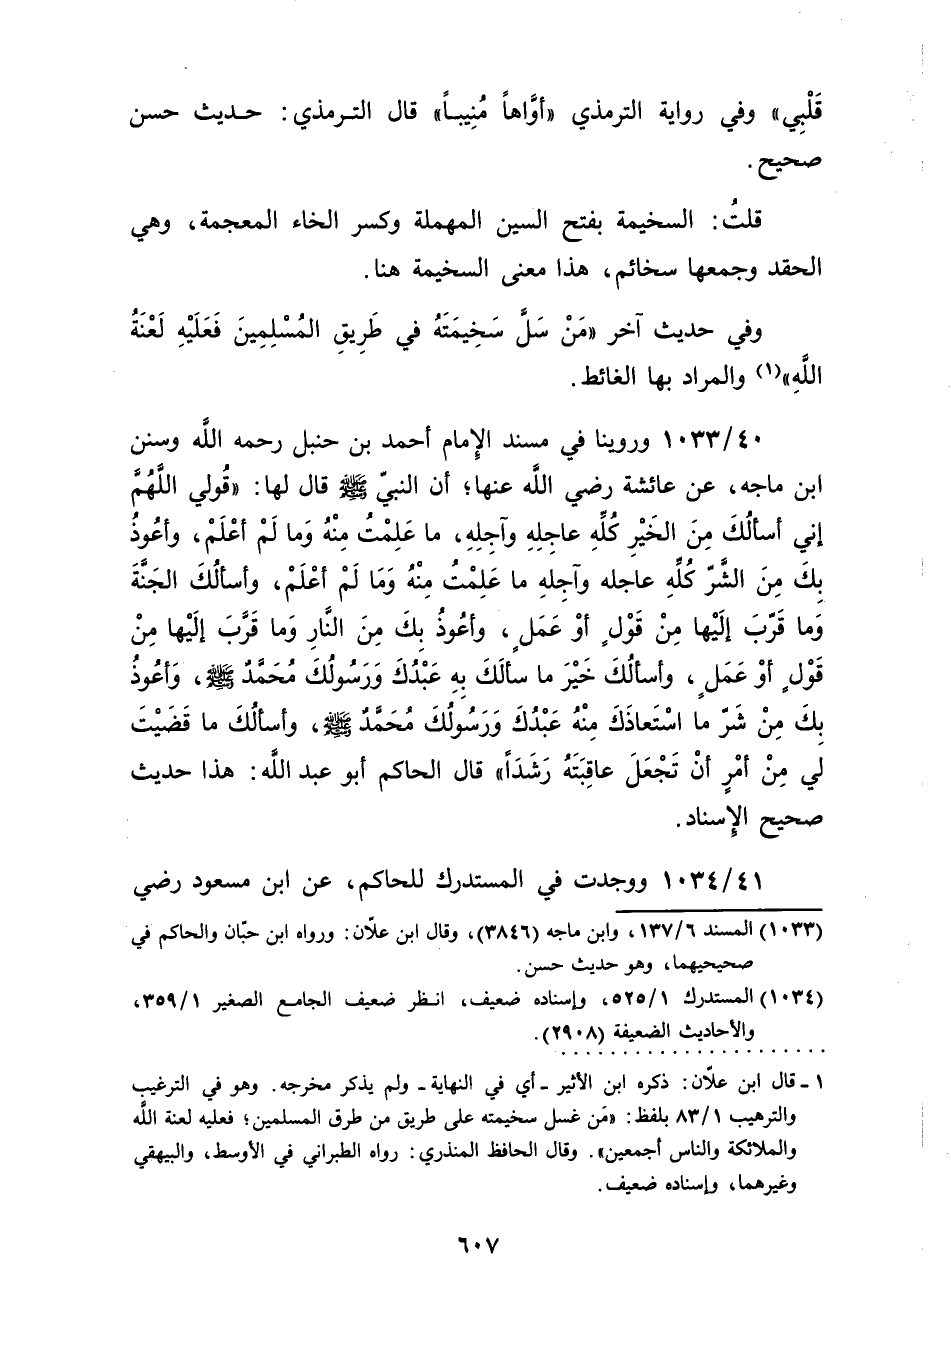 قَلْبِي» وفي رواية الترمذي «أوَّاهاً مُنِيباً» قال الترمذي: حديث حسن
صحيح.
قلتُ: السخيمة بفتح السين المهملة وكسر الخاء المعجمة، وهي
الحقد وجمعها سخائم، هذا معنى السخيمة هنا.
وفي حديث آخر «مَنْ سَلَّ سَخِيمَتَهُ في طَرِيقِ المُسْلِمِينَ فَعَلَيْهِ لَعْنَةُ
اللَّهِ»(١) والمراد بها الغائط.
١٠٣٣/٤٠ وروينا في مسند الإِمام أحمد بن حنبل رحمه اللَّه وسنن
ابن ماجه، عن عائشة رضي اللَّه عنها؛ أن النبيّ ﷺ قال لها: «قُولي اللَّهُمَّ
إني أسألُكَ مِنَ الخَيْرِ كُلِّهِ عاجِلِهِ وآجِلِهِ، ما عَلِمْتُ مِنْهُ وَما لَمْ أعْلَمْ، وأعُوذُ
بِكَ مِنَ الشَّرّ كُلِّهِ عاجله وآجِلِهِ ما عَلِمْتُ مِنْهُ وَمَا لَمْ أعْلَمْ، وأسألُكَ الجَنَّةَ
وَما قَرّبَ إلَيْها مِنْ قَوْلٍ أوْ عَمَلٍ، وأعُوذُ بِكَ مِنَ النَّارِ وَما قَرَّبَ إلَيْها مِنْ
قَوْلٍ أوْ عَمَلٍ، وأسألُكَ خَيْرَ ما سألَكَ بِهِ عَبْدُكَ وَرَسُولُكَ مُحَمَّدٌ ﷺ، وَأعُوذُ
بِكَ مِنْ شَرّ ما اسْتَعاذَكَ مِنْهُ عَبْدُكَ وَرَسُولُكَ مُحَمَّدٌ ﷺ، وأسألُكَ ما قَضَيْتَ
لي مِنْ أمْرٍ أنْ تَجْعَلَ عاقِبَتَهُ رَشَدَاً» قال الحاكم أبو عبد اللَّه: هذا حديث
صحيح الإِسناد.
١٠٣٤/٤١ ووجدت في المستدرك للحاكم، عن ابن مسعود رضي
(١٠٣٣) المسند ١٣٧/٦، وابن ماجه (٣٨٤٦)، وقال ابن علاّن: ورواه ابن حبّان والحاكم في
صحيحيهما، وهو حديث حسن.
(١٠٣٤) المستدرك ٥٢٥/١، وإسناده ضعيف، انظر ضعيف الجامع الصغير ٣٥٩/١،
والأحاديث الضعيفة (٢٩٠٨).
١ - قال ابن علاّن: ذكره ابن الأثير - أي في النهاية - ولم يذكر مخرجه. وهو في الترغيب
والترهيب ٨٣/١ بلفظ: «مَن غسل سخيمته على طريق من طرق المسلمين؛ فعليه لعنة اللَّه
والملائكة والناس أجمعين». وقال الحافظ المنذري: رواه الطبراني في الأوسط، والبيهقي
وغيرهما، وإسناده ضعيف.
٦٠٧